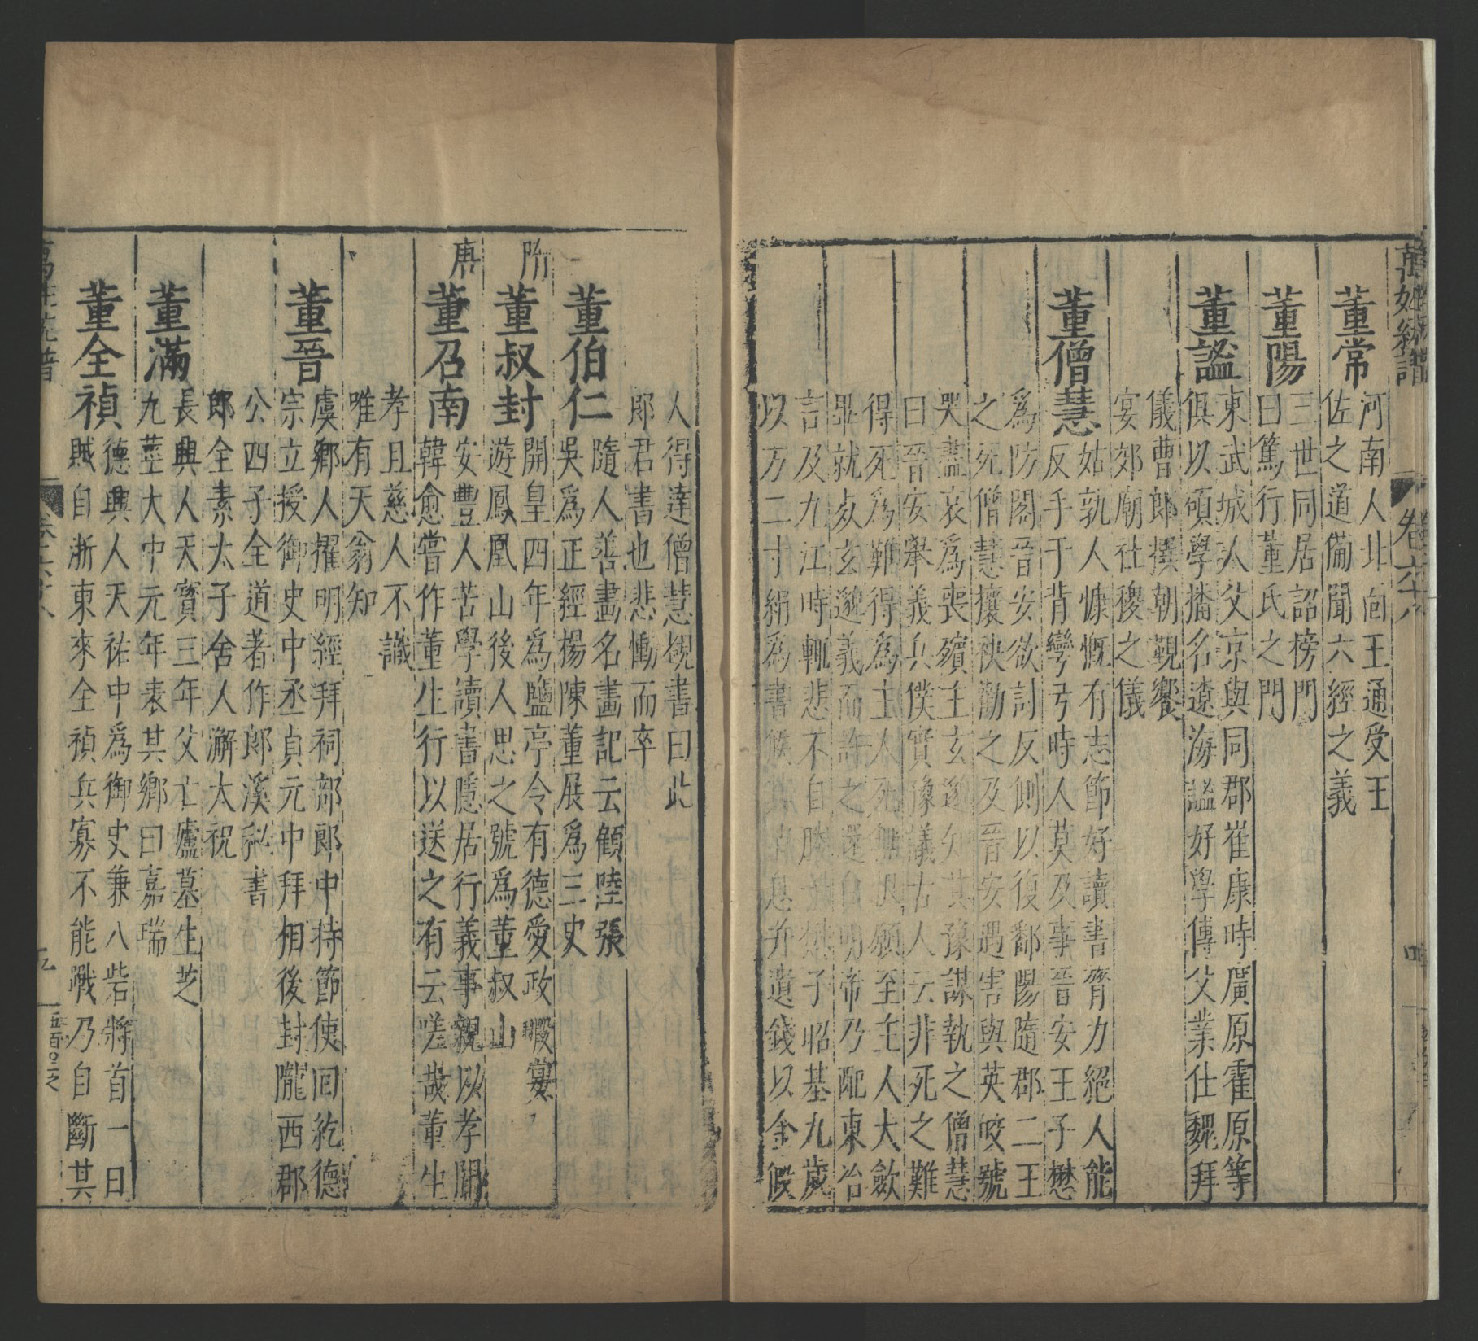 萬姓統譜
卷六十八
董常
河南人北面王通受王
佐之道備聞六經之義
董陽
三世同居詔榜門
曰篤行董氏之門
董謐
東武城人父京與同郡崔康時廣原霍原等
俱以碩學播名遼海謐好學傳父業仕魏拜
儀曹郎撰朝覲饗
宴郊廟社稷之儀
董僧慧
姑孰人慷慨有志節好讀書膂力絕人能
反手于背彎弓時人莫及事晉安王子懋
爲防閤晉安欲討反側以復鄱陽隨郡二王
之死僧慧攘袂勸之及晉安遇害與英皎號
哭盡哀爲喪殯主玄邈知其豫謀執之僧慧
曰晉安舉義兵僕實豫議古人云非死之難
得死爲難得爲主人死無恨願至主人大歛
畢就
玄邈義而許之還白明帝乃配東冶
言及九江時輒悲不自勝
子昭基九歲
以方二寸絹爲書
消息并遺錢以金假
人得達僧慧覩書曰此
郎君書也悲慟而卒
董伯仁
隨人善畵名畵記云顧陸張
吳爲正經楊陳董展爲三史
隋
董叔封
開皇四年爲鹽亭令有德愛政暇宴
游鳳凰山後人思之號爲董叔山
唐
董召南
安豊人苦學讀書隱居行義事親以孝聞
韓愈嘗作董生行以送之有云嗟哉董生
孝且慈人不識
唯有天翁知
董晉
虞鄉人擢明經拜祠部郎中持節使回紇德
宗立授御史中丞貞元中拜相後封隴西郡
公四子全道著作郎溪秘書
郎全素太子舍人澥大祝
董滿
長興人天寳三年父亡廬墓生芝
九莖大中元年表其鄉曰嘉瑞
董全禎
德興人天祐中爲御史兼八砦將首一日
賊自浙東來全禎兵寡不能戰乃自斷其